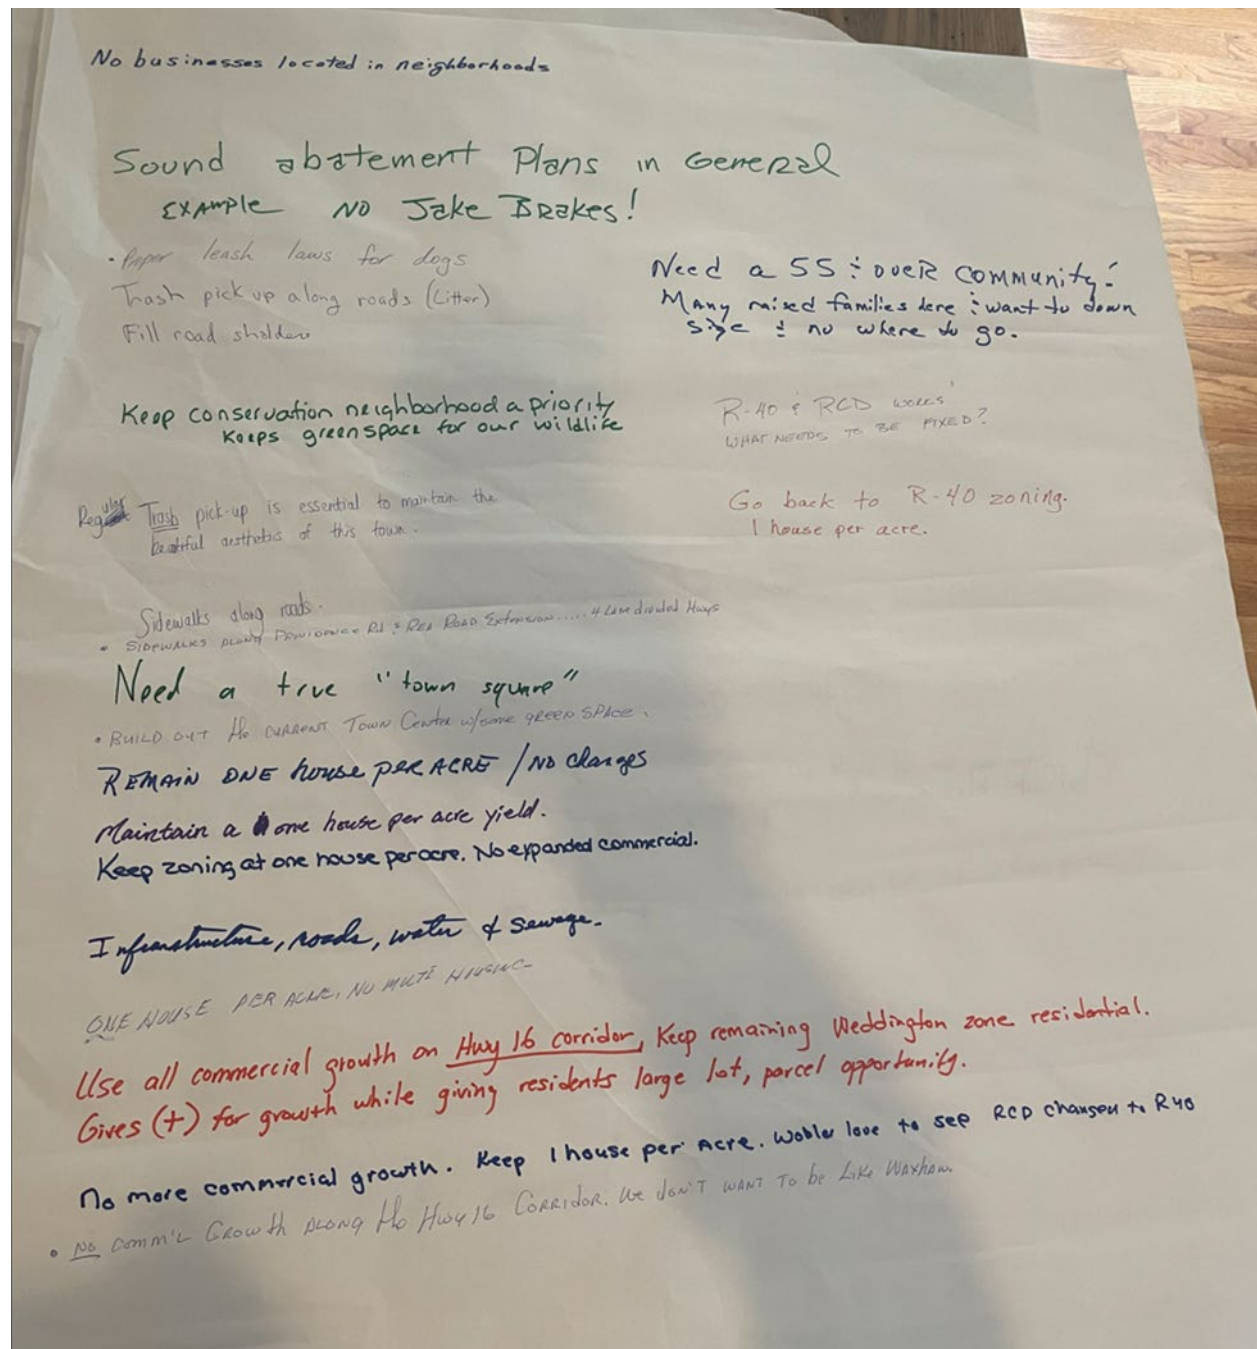 No businesses located in neighborhoods
Sound abatement Plans in General
EXAMPLE NO Jake Brakes!
• Proper leash laws for dogs
Trash pick up along roads (Litter)
Fill road sholders
Need a 55 & over community!
Many raised families here & want to down
size & no where to go.
Keep conservation neighborhood a priority
Keeps greenspace for our wildlife
R-40 & RCD works!
WHAT NEEDS TO BE FIXED?
Regular Trash pick-up is essential to maintain the
beautiful aesthetics of this town.
Go back to R-40 zoning.
1 house per acre.
Sidewalks along roads.
• SIDEWALKS ALONG PROVIDENCE Rd & REA ROAD Extension..... 4 Lane divided Hwys
Need a true "town square"
• BUILD OUT the CURRENT TOWN Center w/some GREEN SPACE.
REMAIN ONE house per ACRE / NO changes
Maintain a one house per acre yield.
Keep zoning at one house per acre. No expanded commercial.
Infrastructure, roads, water & sewage.
ONE HOUSE PER ACRE, NO MULTI HOUSING
Use all commercial growth on Hwy 16 corridor, Keep remaining Weddington zone residential.
Gives (+) for growth while giving residents large lot, parcel opportunity.
No more commercial growth. Keep 1 house per Acre. love to see RCD changed to R40
• NO COMM'L Growth ALONG the Hwy 16 CORRIDOR. We don't WANT To be Like Waxhaw.